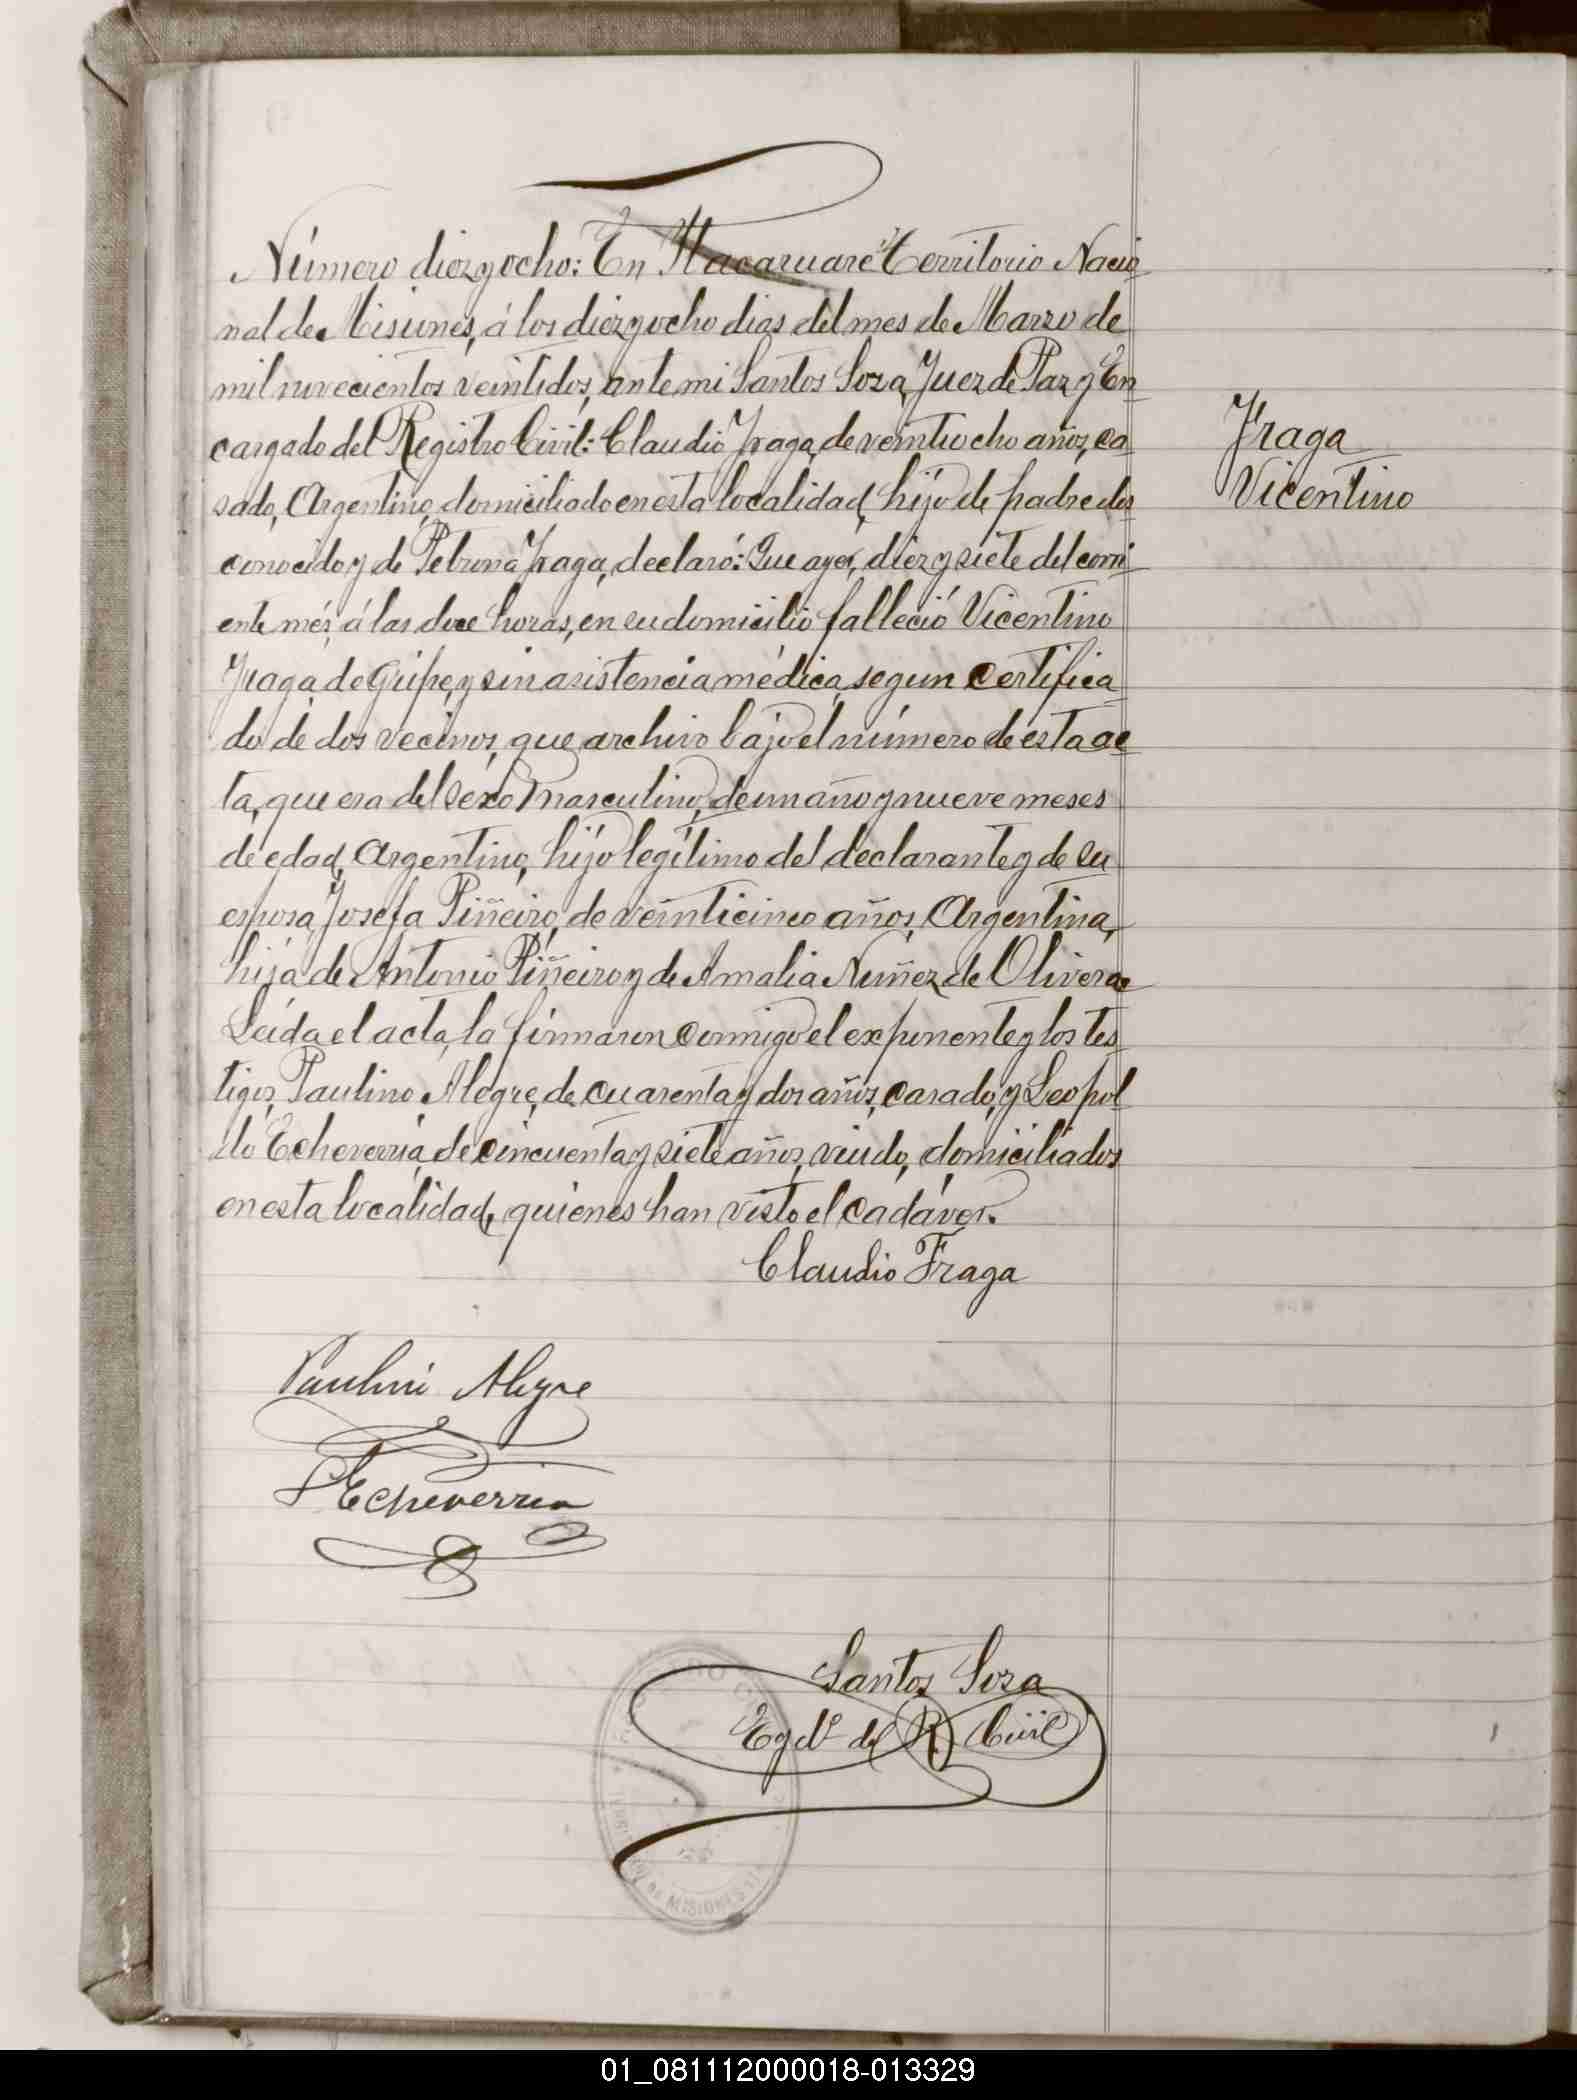 Número diez y ocho: En "Itacaruaré" Territorio Nacio-
nal de Misiones, á los diez y ocho dias del mes de Marzo de
mil novecientos veintidos, ante mi Santos Soza, Juez de Paz y En-
cargado del Registro Civil: Claudio Fraga, de veintiocho años, ca-
sado, Argentino, domiciliado en esta localidad, hijo de padre des-
conocido y de Petrona Fraga, declaró: Que ayer, diez y siete del corri-
ente més, á las doce horas, en su domicilio falleció Vicentino
Fraga, de Gripe, y sin asistencia médica, segun certifica-
do de dos vecinos, que archivo bajo el número de esta ac-
ta, que era del séxo masculino, de un año y nueve meses
de edad, Argentino, hijo legítimo del declarante y de su
esposa, Josefa Piñeiro, de veinticinco años, Argentina,
hija de Antonio Piñeiro y de Amalia Nuñez de Olivera.
Leída el acta, la firmaron conmigo el exponente y los tes-
tigos, Paulino Alegre, de cuarenta y dos años, casado, y Leopol-
do Echeverría, de cincuenta y siete años, viudo, domiciliados
en esta localidad, quienes han visto el cadáver.
Fraga
Vicentino
Claudio Fraga
Paulino Alegre
L Echeverria
Santos Soza
Egdo. del R. Civil
MISIONES
01_081112000018-013329